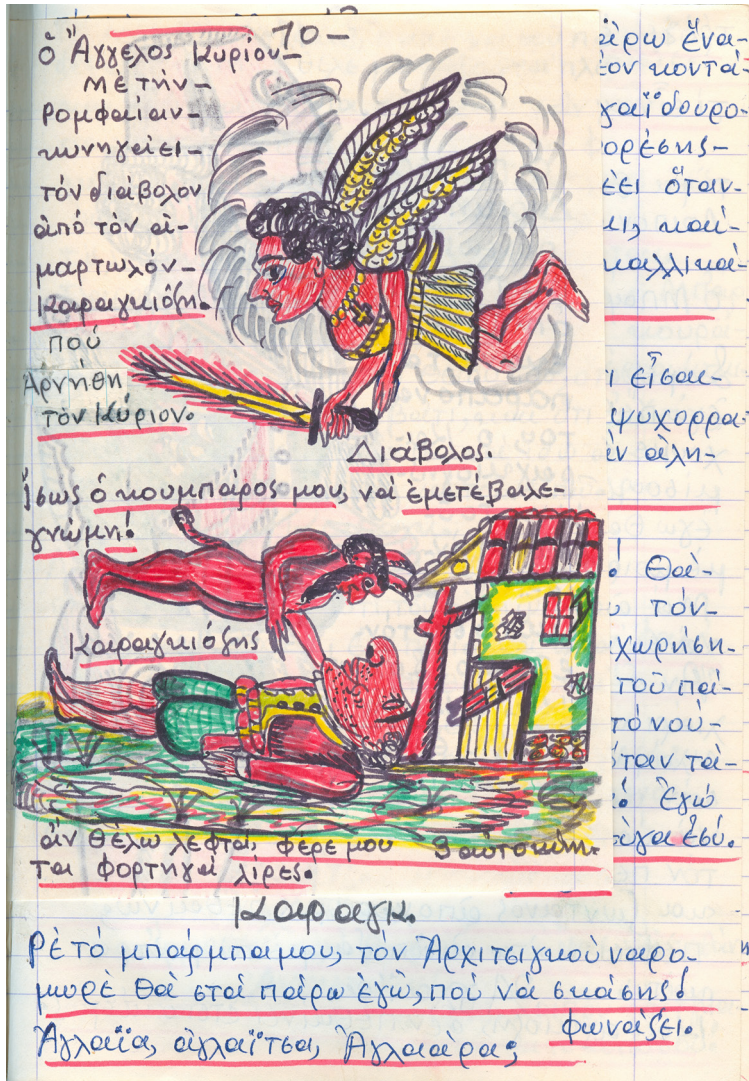 10-
ὁ Ἄγγελος Κυρίου-
μὲ τήν-
Ρομφαίαν-
κυνηγάει-
τόν διάβολον
ἀπό τόν ἁ-
μαρτωλόν-
Καραγκιόζη.
πού
Ἀρνήθη
τόν Κύριον.
Διάβολος.
Ἴσως ὁ κουμπάρος μου, νά ἐμετέβαλε-
γνώμη!
Καραγκιόζης
ἄν θέλω λεφτά, φέρε μου 3 αὐτοκίνη-
τα φορτηγά λίρες.
Καραγκ.
Ρέ τό μπάρμπα μου, τόν Ἀρχιτσιγκούναρο-
μωρέ θά στά πάρω ἐγώ, πού νά σκάσης!
φωνάζει.
Ἀγλαΐα, ἀγλαΐτσα, Ἀγλαάρα;
πάρω ἕνα-
κοντά-
γαϊδουρο-
ὅταν-
καί-
καλλικά-
εἶσαι-
ψυχορρα-
Θά-
τόν-
χωρήση-
τοῦ πα-
Ἐγώ
ἐσύ.